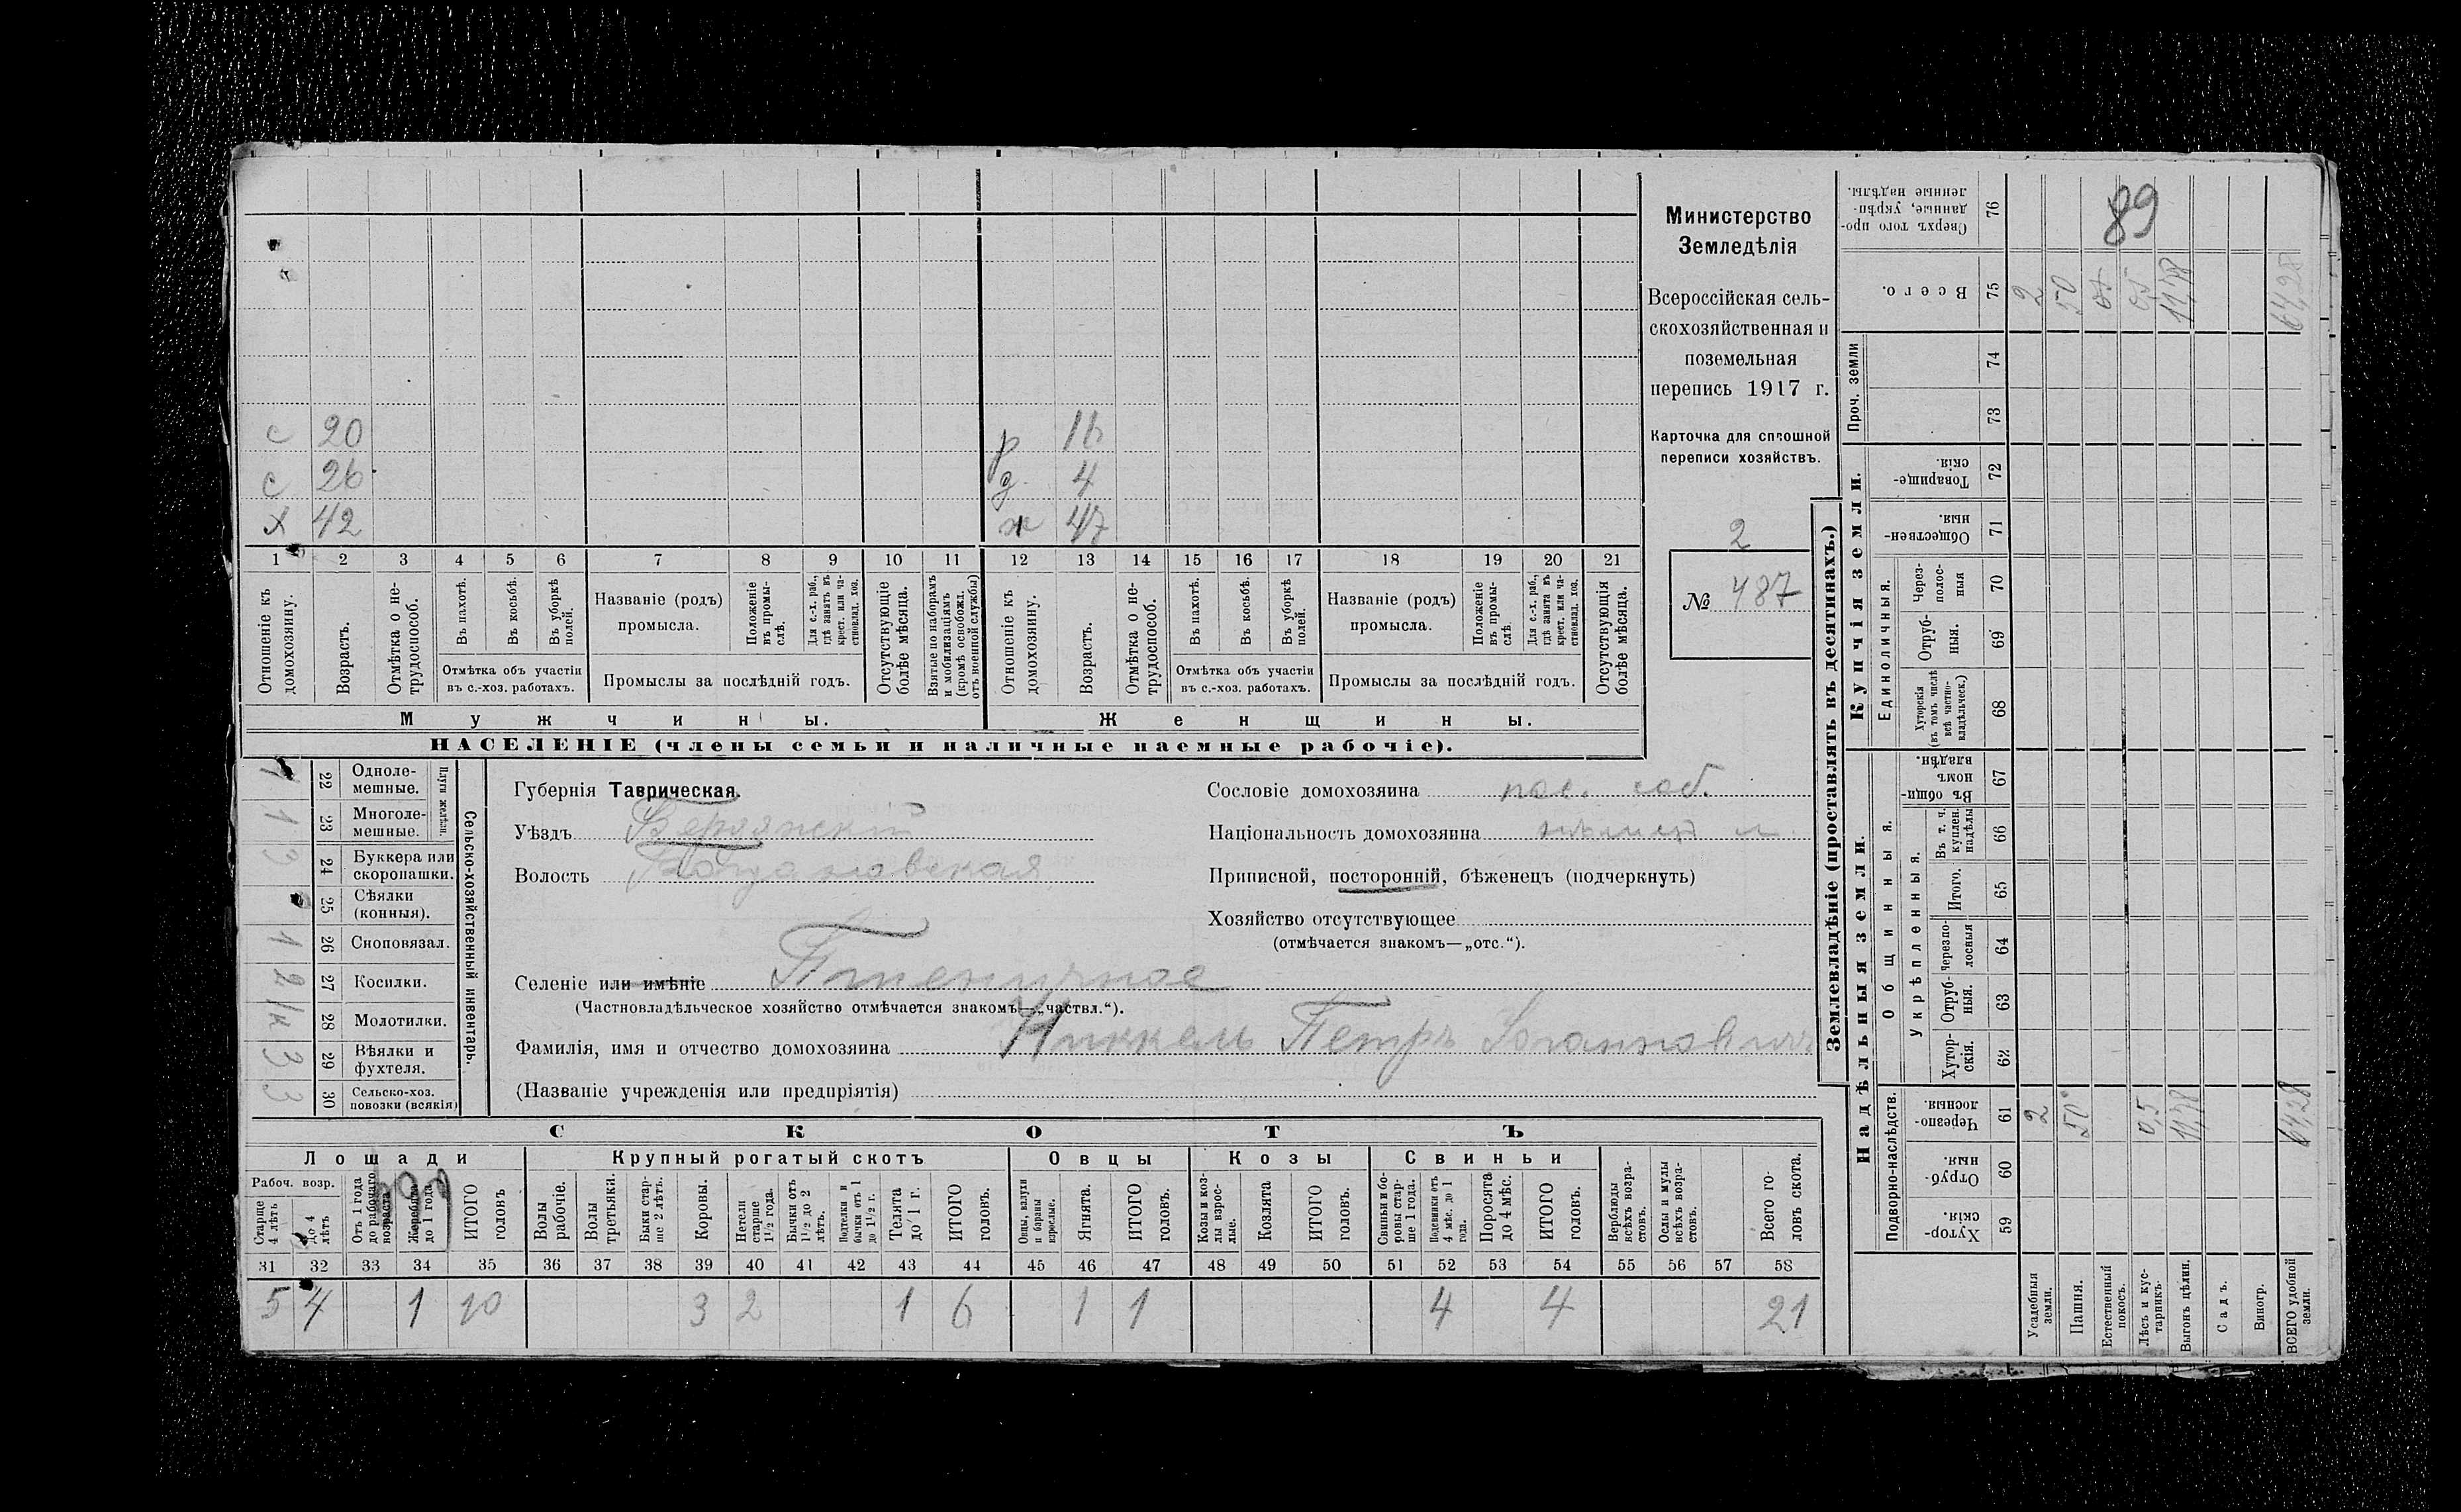 с 20
с 26
х 42
р 16
д 4
ж 47
1 2 3 4 5 6 7 8 9 10 11 12 13 14 15 16 17 18 19 20 21
Отношеніе къ домохозяину.
Возрастъ.
Отмѣтка о не-трудоспособ.
Въ пахотѣ.
Въ косьбѣ.
Въ уборкѣ полей.
Отмѣтка объ участіи
въ с.-хоз. работахъ.
Названіе (родъ)
промысла.
Положеніе въ промы-слѣ.
Для с.-х. раб., гдѣ занятъ въ крест. или ча-стновлад. хоз.
Промыслы за послѣдній годъ.
Отсутствующіе болѣе мѣсяца.
Взятые по наборамъ и мобилизаціямъ (кромѣ освобожд. отъ военной службы)
Отношеніе къ домохозяину.
Возрастъ.
Отмѣтка о не-трудоспособ.
Въ пахотѣ.
Въ косьбѣ.
Въ уборкѣ полей.
Отмѣтка объ участіи
въ с.-хоз. работахъ.
Названіе (родъ)
промысла.
Положеніе въ промы-слѣ.
Для с.-х. раб., гдѣ занята въ крест. или ча-стновлад. хоз.
Промыслы за послѣдній годъ.
Отсутствующія болѣе мѣсяца.
Мужчины.
Женщины.
НАСЕЛЕНІЕ (члены семьи и наличные наемные рабочіе).
Министерство
Земледѣлія
Всероссійская сель-
скохозяйственная и
поземельная
перепись 1917 г.
Карточка для сплошной
переписи хозяйствъ.
2
№ 487
Сельско-хозяйственный инвентарь.
Плуги желѣзн.
22 Одноле-мешные. 1
23 Многоле-мешные. 1
24 Буккера или скоропашки. 3
25 Сѣялки (конныя).
26 Сноповязал. 1
27 Косилки. 2
28 Молотилки. 1/к
29 Вѣялки и фухтеля. 3
30 Сельско-хоз. повозки (всякія) 3
Губернія Таврическая.
Уѣздъ Бердянскій
Волость Богдановская
Селеніе или имѣніе Пшеничное
(Частновладѣльческое хозяйство отмѣчается знакомъ—„частвл.“).
Фамилія, имя и отчество домохозяина Никкель Петръ Іоганновичъ
(Названіе учрежденія или предпріятія)
Сословіе домохозяина пос. соб.
Національность домохозяина нѣмец
Приписной, посторонній, бѣженецъ (подчеркнуть)
Хозяйство отсутствующее
(отмѣчается знакомъ—„отс.“).
СКОТЪ
Лошади
Крупный рогатый скотъ
Овцы
Козы
Свиньи
Рабоч. возр.
Старше 4 лѣтъ
До 4 лѣтъ
Отъ 1 года до рабочаго возраста
Жеребята до 1 года
ИТОГО головъ
Волы рабочіе.
Волы третьяки.
Быки стар-ше 2 лѣтъ.
Коровы.
Нетели старше 1½ года.
Бычки отъ 1½ до 2 лѣтъ.
Подтелки и бычки отъ 1 до 1½ г.
Телята до 1 г.
ИТОГО головъ.
Овцы, валухи и бараны взрослые.
Ягнята.
ИТОГО головъ.
Козы и коз-лы взрос-лые.
Козлята
ИТОГО головъ.
Свиньи и бо-ровы стар-ше 1 года.
Подсвинки отъ 4 мѣс. до 1 года.
Поросята до 4 мѣс.
ИТОГО головъ.
Верблюды всѣхъ возра-стовъ.
Ослы и мулы всѣхъ возра-стовъ.
Всего го-ловъ скота.
31 32 33 34 35 36 37 38 39 40 41 42 43 44 45 46 47 48 49 50 51 52 53 54 55 56 57 58
5 4 1 10 3 2 1 6 1 1 4 4 21
Землевладѣніе (проставлять въ десятинахъ.)
Надѣльныя земли.
Купчія земли.
Проч. земли
Подворно-наслѣдств.
Общинныя.
Укрѣпленныя.
Единоличныя.
Хутор-скія. 59
Отруб-ныя. 60
Черезпо-лосныя. 61
Хутор-скія. 62
Отруб-ныя. 63
Черезпо-лосныя 64
Итого. 65
Въ т. ч. куплен. надѣлы 66
Въ общин-номъ владѣн. 67
Хуторскія (въ томъ числѣ всѣ частно-владѣльческ.) 68
Отруб-ныя. 69
Через-полос-ныя 70
Обществен-ныя. 71
Товарище-скія. 72
73
74
Всего. 75
Сверхъ того про-данные, укрѣп-ленные надѣлы. 76
89
Усадебныя земли. 2 2
Пашня. 50 50
Естественный покосъ.
Лѣсъ и кус-тарникъ. 0,5 0,5
Выгонъ цѣлин. 11,78 11,78
Садъ.
Виногр.
ВСЕГО удобной земли. 64,28 64,28